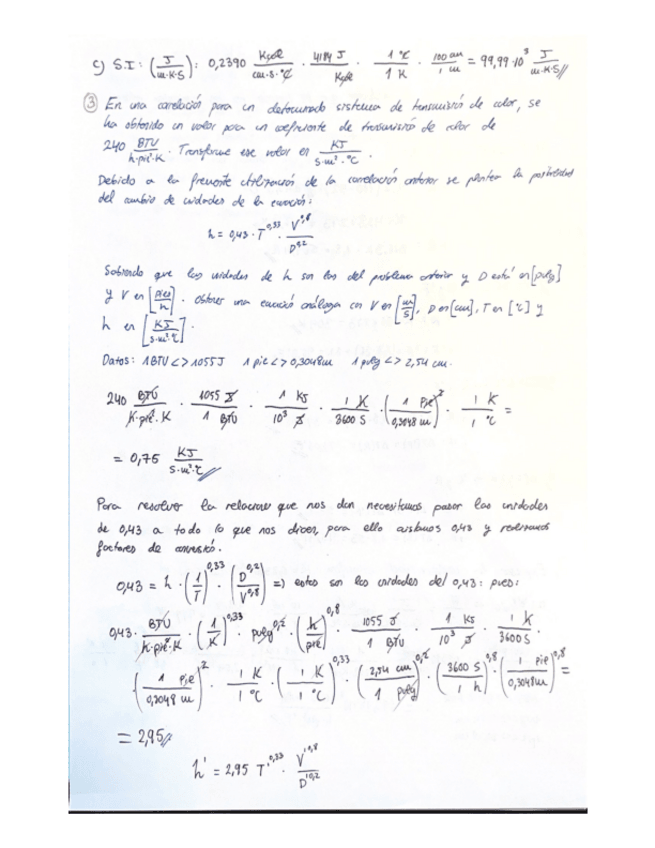 c) S.I: (J/m·K·S): 0,2390 Kcal/cm·s·ºC · 4184 J/Kcal · 1 ºC/1 K · 100 cm/1 m = 99,99·10³ J/m·K·S //
③ En una correlación para un determinado sistema de transmisión de calor, se
ha obtenido un valor para un coeficiente de transmisión de calor de
240 BTU/h·pie²·K. Transforme ese valor en KJ/s·m²·ºC.
Debido a la frecuente utilización de la correlación anterior se plantea la posibilidad
del cambio de unidades de la ecuación:
h = 0,43 · T^0,33 · V^0,8/D^0,2
Sabiendo que las unidades de h son las del problema anterior y D está en [pulg]
y V en [pies/h]. Obtener una ecuación análoga con V en [m/s], D en [cm], T en [ºC] y
h en [KJ/s·m²·ºC].
Datos: 1BTU<>1055J 1 pie<>0,3048m 1 pulg<>2,54 cm.
240 BTU/h·pie²·K · 1055 J/1 BTU · 1 KJ/10³ J · 1 h/3600 S · (1 pie/0,3048 m)² · 1 K/1 ºC =
= 0,75 KJ/S·m²·ºC //
Para resolver la relaciones que nos dan necesitamos pasar las unidades
de 0,43 a todo lo que nos dicen, para ello aislamos 0,43 y realizamos
factores de conversión.
0,43 = h · (1/T)^0,33 · (D^0,2/V^0,8) => estas son las unidades del 0,43: pues:
0,43 · BTU/h·pie²·K · (1/K)^0,33 · pulg^0,2 · (h/pie)^0,8 · 1055 J/1 BTU · 1 KJ/10³ J · 1 h/3600 S ·
· (1 pie/0,3048 m)² · 1 K/1 ºC · (1 K/1 ºC)^0,33 · (2,54 cm/1 pulg)^0,2 · (3600 S/1 h)^0,8 · (1 pie/0,3048m)^0,8 =
= 2,95 //
h' = 2,95 T'^0,33 · V'^0,8/D'^0,2